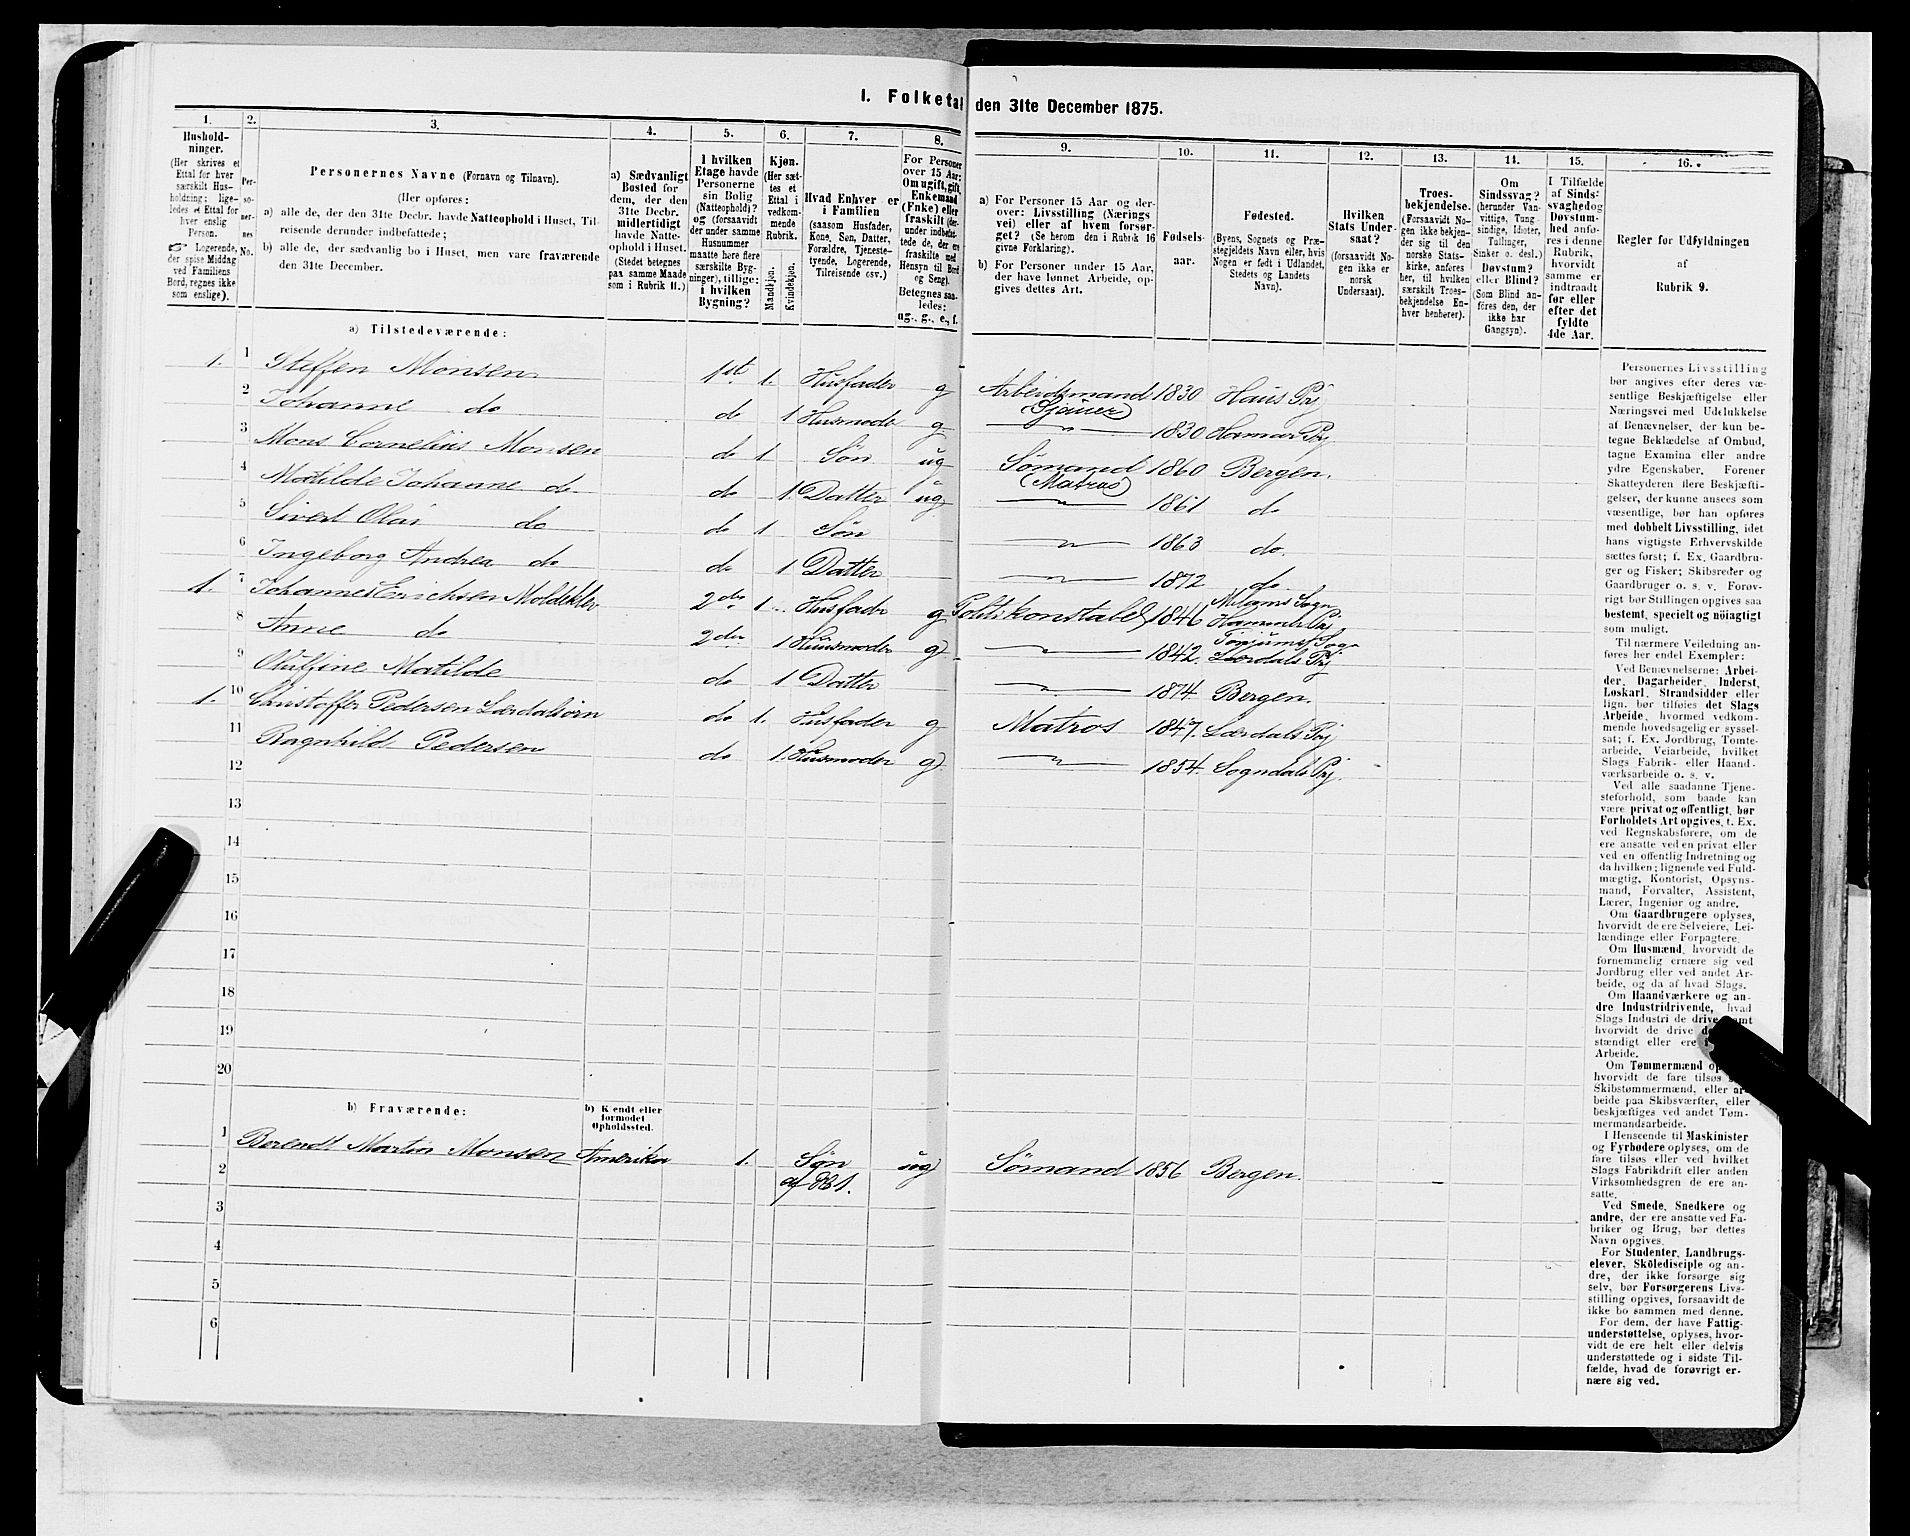 I. Folketal den 31te December 1875.
1.
Hushold-
ninger.
(Her skrives et
Ettal for hver
særskilt Hus-
holdning; lige-
ledes et Ettal for
hver enslig
Person.
☞ Logerende,
der spise Middag
ved Familiens
Bord, regnes ikke
som enslige).
2.
Per-
so-
ner-
nes
No.
3.
Personernes Navne (Fornavn og Tilnavn).
(Her opføres:
a) alle de, der den 31te Decbr. havde Natteophold i Huset, Til-
reisende derunder indbefattede;
b) alle de, der sædvanlig bo i Huset, men vare fraværende
den 31te December.
4.
a) Sædvanligt
Bosted for
dem, der den
31te Decbr.
midlertidigt
havde Natte-
ophold i Huset.
(Stedet betegnes
paa samme Maade
som i Rubrik 11.)
5.
I hvilken
Etage havde
Personerne
sin Bolig
(Natteophold)?
og (forsaavidt
der under samme
Husnummer
maatte høre flere
særskilte Byg-
ninger), tillige:
i hvilken
Bygning?
6.
Kjøn.
(Her sæt-
tes et
Ettal i
vedkom-
mende
Rubrik.
Mandkjøn.
Kvindekjøn.
7.
Hvad Enhver er
i Familien
(saasom Husfader,
Kone, Søn, Datter,
Forældre, Tjeneste-
tyende, Logerende,
Tilreisende osv.)
8.
For Personer
over 15 Aar:
Om ugift, gift,
Enkemand
(Enke) eller
fraskilt (der-
under indbefat-
tede de, der ere
fraskilte med
Hensyn til Bord
og Seng).
Betegnes saa-
ledes:
ug., g., e., f.
9.
a) For Personer 15 Aar og der-
over: Livsstilling (Nærings
vei) eller af hvem forsør-
get? (Se herom den i Rubrik 16
givne Forklaring).
b) For Personer under 15 Aar,
der have lønnet Arbeide, op-
gives dettes Art.
10.
Fødsels-
aar.
11.
Fødested.
(Byens, Sognets og Præ-
stegjeldets Navn eller, hvis
Nogen er født i Udlandet,
Stedets og Landets
Navn).
12.
Hvilken
Stats Under-
saat?
(forsaavidt No-
gen ikke er
norsk
Undersaat).
13.
Troes-
bekjendelse.
(Forsaavidt No-
gen ikke bekjen-
der sig til den
norske Stats-
kirke, anføres
her, til hvilken
særskilt Troes-
bekjendelse En-
hver henhører).
14.
Om
Sindssvag?
(herunder Van-
vittige, Tung
sindige, Idioter,
Tullinger,
Sinker o. desl.)
Døvstum?
eller Blind?
(Som Blind an-
føres den, der
ikke har
Gangsyn).
15.
I Tilfælde
af Sinds-
svaghed og
Døvstum-
hed anfø-
res i denne
Rubrik,
hvorvidt
samme er
indtraadt
før eller
efter det
fyldte
4de Aar.
16.
Regler for Udfyldningen
af
Rubrik 9.
a) Tilstedeværende:
1. 1 Steffen Monsen 1ste 1. Husfader g Arbeidsmand (Sjauer) 1830 Haus Prj
2 Johanne do do 1 Husmoder g. — " — 1830 Hammer Prj
3 Mons Cornelius Monsen do 1 Søn ug Sømand (Matros) 1860 Bergen.
4 Matilde Johanne do do 1. Datter ug — " — 1861 do
5 Sivert Olai do do 1 Søn — " — 1863 do.
6 Ingeborg Andrea do do 1 Datter — " — 1872 do
1. 7 Johannes Erichsen Moldeklev 2den 1. Husfader g Politikonstabel 1846 Hammer Prj
8 Anne do 2den 1 Huusmoder g — " — 1842. Tønjums Sogn Lærdals Prj
9 Oluffine Matilde do 1 Datter — " — 1874 Bergen.
1. 10 Christoffer Pedersen Lærdalsørn do 1. Husfader g Matros 1847. Lærdals Prj
11 Ragnhild Pedersen do 1. Husmoder g — " — 1854. Sogndals Prj.
12
13
14
15
16
17
18
19
20
b) Fraværende:
b) Kjendt eller
formodet
Opholdssted.
1 Berendt Martin Monsen Amerika 1. Søn af No 1. ug Sømand 1856 Bergen.
2
3
4
5
6
Personernes Livsstilling
bør angives efter deres væ-
sentlige Beskjæftigelse eller
Næringsvei med Udelukkelse
af Benævnelser, der kun be-
tegne Beklædelse af Ombud,
tagne Examina eller andre
ydre Egenskaber. Forener
Skatteyderen flere Beskjæfti-
gelser, der kunne ansees som
væsentlige, bør han opføres
med dobbelt Livsstilling, idet
hans vigtigste Erhvervskilde
sættes først; f. Ex. Gaardbru-
ger og Fisker; Skibsreder og
Gaardbruger o. s. v. Forøv-
rigt bør Stillingen opgives saa
bestemt, specielt og nöiagtigt
som muligt.
Til nærmere Veiledning an-
føres her endel Exempler:
Ved Benævnelserne: Arbei-
der, Dagarbeider, Inderst,
Løskarl, Strandsidder eller
lign. bør tilføies det Slags
Arbeide, hvormed vedkom-
mende hovedsagelig er syssel-
sat; f. Ex. Jordbrug, Tomte-
arbeide, Veiarbeide, hvilket
Slags Fabrik- eller Haand-
værksarbeide o. s. v.
Ved alle saadanne Tjene-
steforhold, som baade kan
være privat og offentligt, bør
Forholdets Art opgives, t. Ex.
ved Regnskabsførere, om de
ere ansatte ved en privat eller
ved en offentlig Indretning og
da hvilken; lignende ved Fuld-
mægtig, Kontorist, Opsyns-
mand, Forvalter, Assistent,
Lærer, Ingeniør og andre.
Om Gaardbrugere oplyses,
hvorvidt de ere Selveiere, Lei-
lændinge eller Forpagtere.
Om Husmænd, hvorvidt de
fornemmelig ernære sig ved
Jordbrug eller ved andet Ar-
beide, og da af hvad Slags.
Om Haandværkere og an-
dre Industridrivende, hvad
Slags Industri de drive samt
hvorvidt de drive
stændigt eller ere
Arbeide.
Om Tømmermænd
hvorvidt de fare tilsøs
Skibstømmermænd, eller ar-
beide paa Skibsværfter, eller
beskjæftiges ved andet Tøm-
mermandsarbeide.
I Henseende til Maskinister
og Fyrbødere oplyses, om de
fare tilsøs eller ved hvilket
Slags Fabrikdrift eller anden
Virksomhedsgren de ere an-
satte.
Ved Smede, Snedkere og
andre, der ere ansatte ved Fa-
briker og Brug, bør dettes
Navn opgives.
For Studenter, Landbrugs-
elever, Skoledisciple og an-
dre, der ikke forsørge sig
selv, bør Forsørgerens Livs-
stilling opgives, forsaavidt de
ikke bo sammen med denne.
For dem, der have Fattig-
understøttelse, oplyses, hvor-
vidt de ere helt eller delvis
understøttede og i sidste Til-
fælde, hvad de forøvrigt er-
nære sig ved.